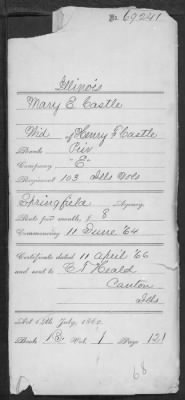 No 69,241
Illinois
Mary E. Castle
Wid of Henry F Castle
Rank Priv
Company "E"
Regiment 103 Ills Vols
Springfield Agency
Rate per month, $ 8
Commencing 11 June '64
Certificate dated 11 April '66
and sent to E T Heald
Canton
Ills
Act 14th July, 1862.
Book B Vol. 1 Page 121
68